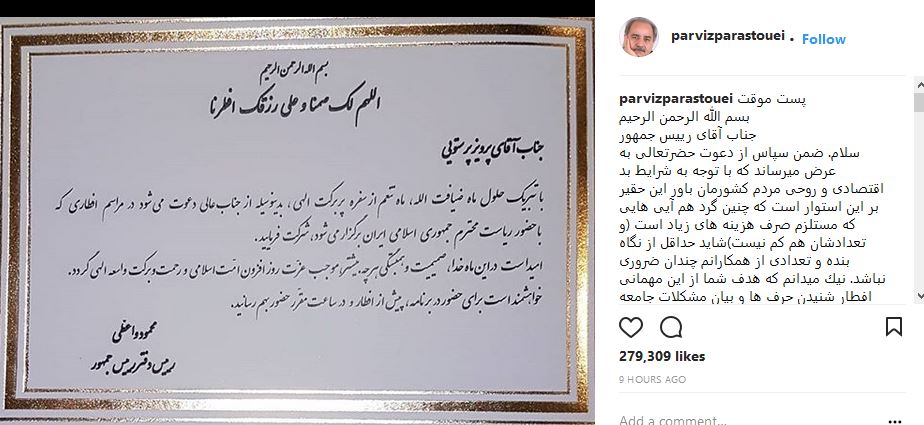 بسم الله الرحمن الرحیم
اللهم لک صمنا و علی رزقک افطرنا
جناب آقای پرویز پرستویی
با تبریک حلول ماه ضیافت الله، ماه تنعم از سفره پر برکت الهی، بدینوسیله از جناب عالی دعوت می‌شود در مراسم افطاری که
با حضور ریاست محترم جمهوری اسلامی ایران برگزار می‌شود، شرکت فرمایید.
امید است در این ماه خدا، صمیمیت و همبستگی هرچه بیشتر موجب عزت روز افزون امت اسلامی و رحمت و برکت واسعه الهی گردد.
خواهشمند است برای حضور در برنامه، پیش از افطار و در ساعت مقرر حضور بهم رسانید.
محمود واعظی
رییس دفتر رییس جمهور
parvizparastouei • Follow
parvizparastouei پست موقت
بسم الله الرحمن الرحیم
جناب آقای رییس جمهور
سلام. ضمن سپاس از دعوت حضرتعالی به
عرض میرساند که با توجه به شرایط بد
اقتصادی و روحی مردم کشورمان باور این حقیر
بر این استوار است که چنین گرد هم آیی هایی
که مستلزم صرف هزینه های زیاد است (و
تعدادشان هم کم نیست)شاید حداقل از نگاه
بنده و تعدادی از همکارانم چندان ضروری
نباشد. نیك میدانم که هدف شما از این مهمانی
افطار شنیدن حرف ها و بیان مشکلات جامعه
279,309 likes
9 HOURS AGO
Add a comment...